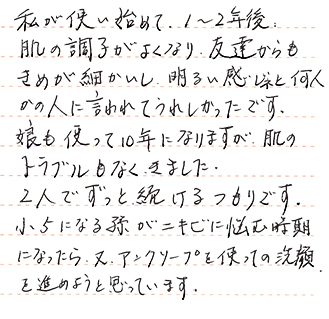 私が使い始めて、1～2年後、
肌の調子がよくなり、友達からも
きめが細かいし、明るい感じねと何人
かの人に言われてうれしかったです。
娘も使って10年になりますが、肌の
トラブルもなくきました。
2人でずっと続けるつもりです。
小5になる孫がニキビに悩む時期
になったら、又、アンクソープを使っての洗顔
を進めようと思っています。